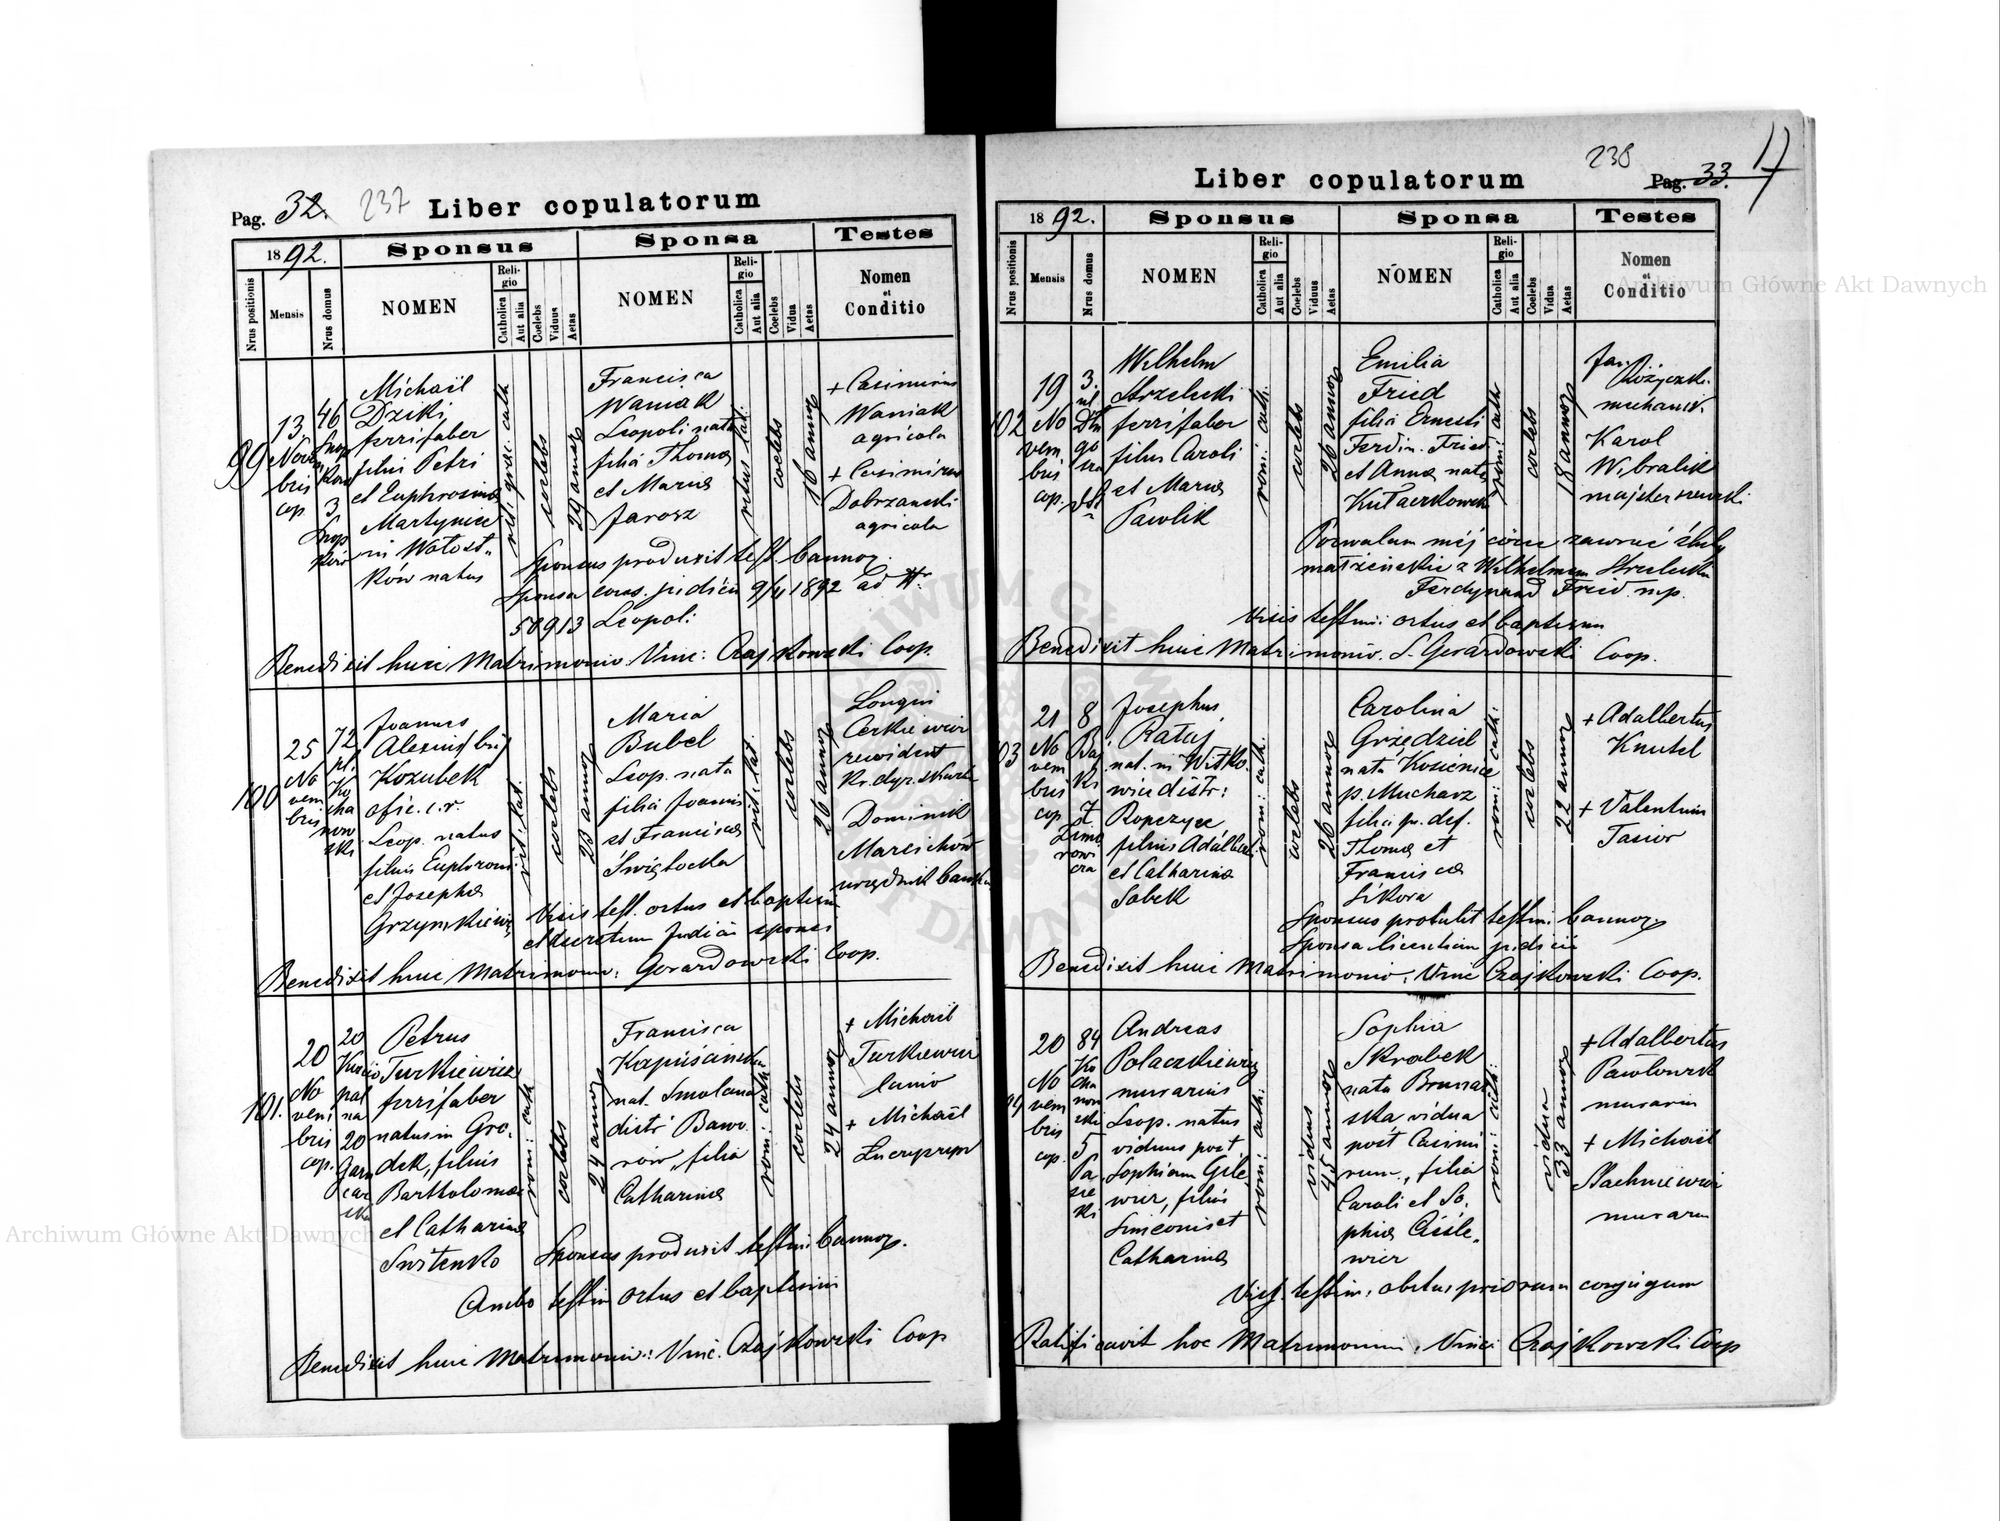 Pag. 32. 237 Liber copulatorum
1892. Sponsus Sponsa Testes
Nrus positionis Mensis Nrus domus NOMEN Religio Catholica Aut alia Coelebs Viduus Aetas NOMEN Religio Catholica Aut alia Coelebs Vidua Aetas Nomen et Conditio
99
13
Novem
bris
cop.
46
3
Michaël
Dziki
ferrifaber
filius Petri
et Euphrosina
Martynice
in Wołost-
ków natus
rit. graec. cath
coelebs
29 annor
Francisca
Waniak
Leopoli nata
filia Thoma
et Maria
Jarosz
ritus lat.
coelebs
16 annor
+ Casimirus
Waniak
agricola
+ Casimirus
Dobrzanski
agricola
Sponsus produxit test. bannor.
Sponsa cons. judicii 9/4 1892 ad Nr
50913 Leopoli
Benedixit huic Matrimonio Vinc: Czajkowski Coop.
100
25
No
vem
bris
72
pl.
Ko
cha
now
ski
Joannes
Alexius (bin)
Kozubek
ofic. c.r.
Leop. natus
filius Euphroni
et Josepha
Grzymkiewicz
rit. lat.
coelebs
28 annor
Maria
Bubel
Leop. nata
filia Joannis
et Francisca
Świętocka
rit. lat.
coelebs
26 annor
Longin
Cerkiewicz
rewident
Dominik
Marcichów
urzędnik
Visis test. ortus et baptismi
et decretum Judicii sponsi
Benedixit huic Matrimonio: Gerardowski Coop.
101.
20
No
vem
bris
cop.
20
20
Petrus
Turkiewicz
ferrifaber
natus in Gro-
dek, filius
Bartholomæi
et Catharina
Switenko
rom: cath
coelebs
24 annor
Francisca
Kapuścinska
nat. Smolana
distr Bawo
rów, filia
Catharina
rom: cath:
coelebs
24 annor
+ Michaël
Turkiewicz
lanio
+ Michaël
Sponsus produxit testim bannor.
Ambo testim ortus et baptismi
Benedixit huic Matrimonio: Vinc. Czajkowski Coop
Liber copulatorum 238 Pag. 33. 17
1892. Sponsus Sponsa Testes
Nrus positionis Mensis Nrus domus NOMEN Religio Catholica Aut alia Coelebs Viduus Aetas NOMEN Religio Catholica Aut alia Coelebs Vidua Aetas Nomen et Conditio
102
19
No
vem
bris
cop.
3.
Wilhelm
Strzelecki
ferrifaber
filius Caroli
et Maria
Pawlik
rom: cath.
coelebs
26 annor
Emilia
Fried
filia Ernesti
Ferdin. Fried
et Anna nata
Kułaczkowska
rom: cath
coelebs
18 annor
Jan
Różycki
mechanik
Karol
Wibralik
majster szewski
Pozwalam mej córce zawrzeć śluby
małżeńskie z Wilhelmem Strzeleckim
Ferdynand Fried mp.
Visis testim: ortus et baptismi
Benedixit huic Matrimonio. S. Gerardowski Coop.
103
21
No
vem
bris
cop
8
Baj
ki
7
Zimo
rowi
cza
Josephus
Rataj
nat. in Witko-
wice distr:
Ropczyce
filius Adalberti
et Catharina
Sobek
rom: cath.
coelebs
26 annor
Carolina
Grzędziel
nata Kosienice
p. Mucharz
filia p. def.
Thoma et
Francisca
Sikora
rom: cath:
coelebs
22 annor
+ Adalbertus
Knutel
+ Valentinus
Tasior
Sponsus protulit testim: bannor
Sponsa licentiam judicii
Benedixit huic Matrimonio: Vinc Czajkowski Coop.
20
No
vem
bris
cop.
84
Ko
cha
now
ski
5
Pa
sie
ki
Andreas
Polaczkiewicz
murarius
Leop. natus
viduus post
Sophiam Gile
wicz, filius
Simeonis et
Catharina
rom: cath:
viduus
45 annor
Sophia
Skrabek
nata Brunar
ska vidua
post Casimi
rum, filia
Caroli et So-
phia Cisle-
wicz
rom: cath:
vidua
33 annor
+ Adalbertus
Pawłowski
murarius
+ Michaël
Machniewicz
murarius
Vis. testim: obitus priorum conjugum
Ratificavit hoc Matrimonium: Vinc: Czajkowski Coop
Archiwum Główne Akt Dawnych
Archiwum Główne Akt Dawnych